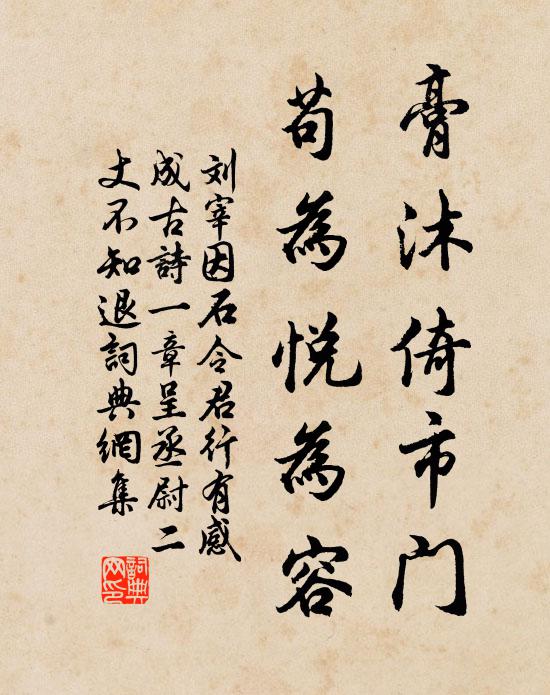 膏沐倚市门
苟為悅為容
刘宰因石令君行有感
成古詩一章呈丞尉二
丈不知退詞典網集
詞典
网印